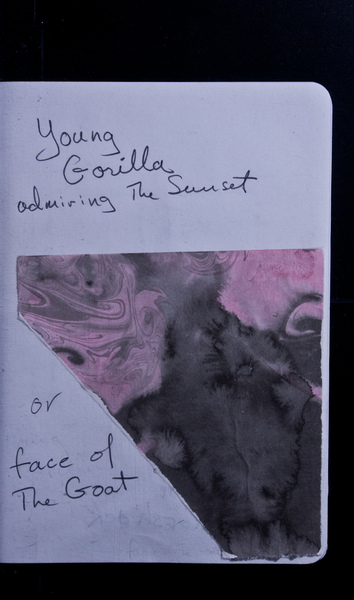 Young
Gorilla
admiring The Sunset
or
face of
The Goat